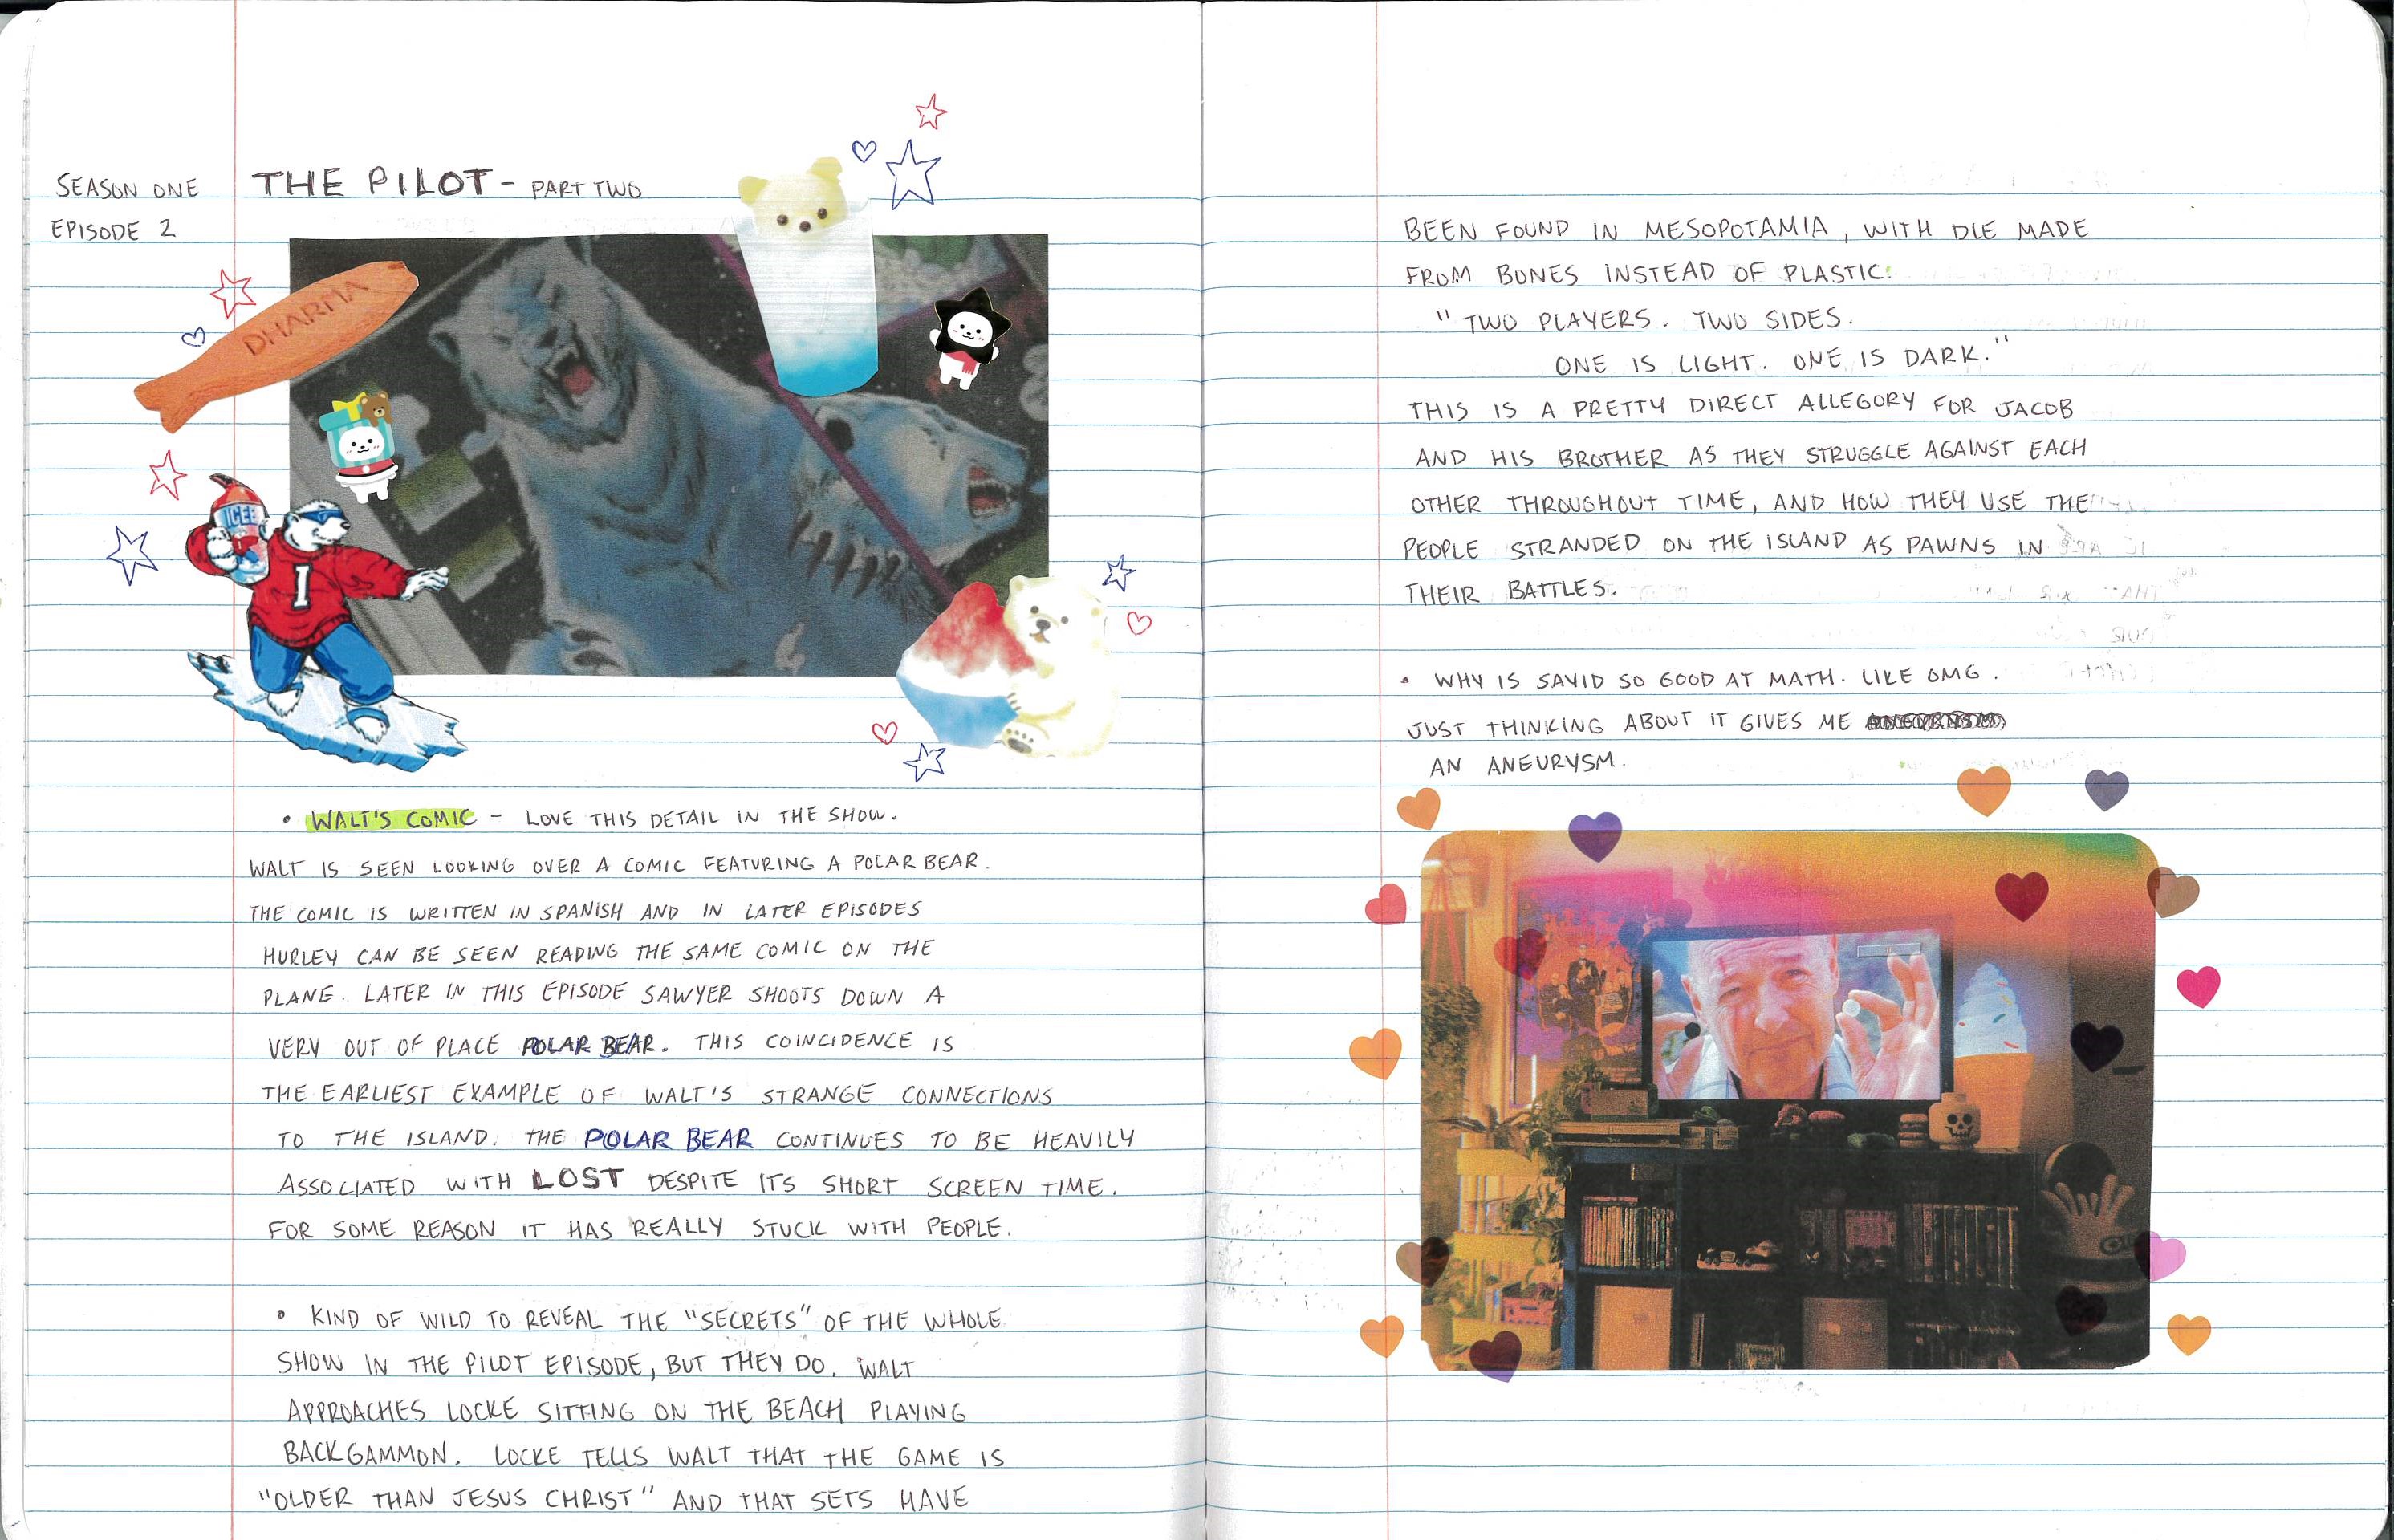 SEASON ONE
EPISODE 2
THE PILOT - PART TWO
DHARMA
ICEE
I
• WALT'S COMIC - LOVE THIS DETAIL IN THE SHOW.
WALT IS SEEN LOOKING OVER A COMIC FEATURING A POLAR BEAR.
THE COMIC IS WRITTEN IN SPANISH AND IN LATER EPISODES
HURLEY CAN BE SEEN READING THE SAME COMIC ON THE
PLANE. LATER IN THIS EPISODE SAWYER SHOOTS DOWN A
VERY OUT OF PLACE POLAR BEAR. THIS COINCIDENCE IS
THE EARLIEST EXAMPLE OF WALT'S STRANGE CONNECTIONS
TO THE ISLAND. THE POLAR BEAR CONTINUES TO BE HEAVILY
ASSOCIATED WITH LOST DESPITE ITS SHORT SCREEN TIME.
FOR SOME REASON IT HAS REALLY STUCK WITH PEOPLE.
• KIND OF WILD TO REVEAL THE "SECRETS" OF THE WHOLE
SHOW IN THE PILOT EPISODE, BUT THEY DO. WALT
APPROACHES LOCKE SITTING ON THE BEACH PLAYING
BACKGAMMON. LOCKE TELLS WALT THAT THE GAME IS
"OLDER THAN JESUS CHRIST" AND THAT SETS HAVE
BEEN FOUND IN MESOPOTAMIA, WITH DIE MADE
FROM BONES INSTEAD OF PLASTIC:
"TWO PLAYERS. TWO SIDES.
ONE IS LIGHT. ONE IS DARK."
THIS IS A PRETTY DIRECT ALLEGORY FOR JACOB
AND HIS BROTHER AS THEY STRUGGLE AGAINST EACH
OTHER THROUGHOUT TIME, AND HOW THEY USE THE
PEOPLE STRANDED ON THE ISLAND AS PAWNS IN
THEIR BATTLES.
• WHY IS SAYID SO GOOD AT MATH. LIKE OMG.
JUST THINKING ABOUT IT GIVES ME
AN ANEURYSM.